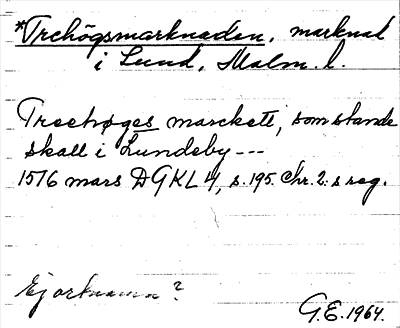 *Trehögsmarknaden, marknad
i Lund, Malm. l.
Treehøges marckett, som stande
skall i Lundeby ---
1516 mars DGKL 4, s. 195. Chr. 2:s reg.
Ej ortnamn?
G.E. 1964.